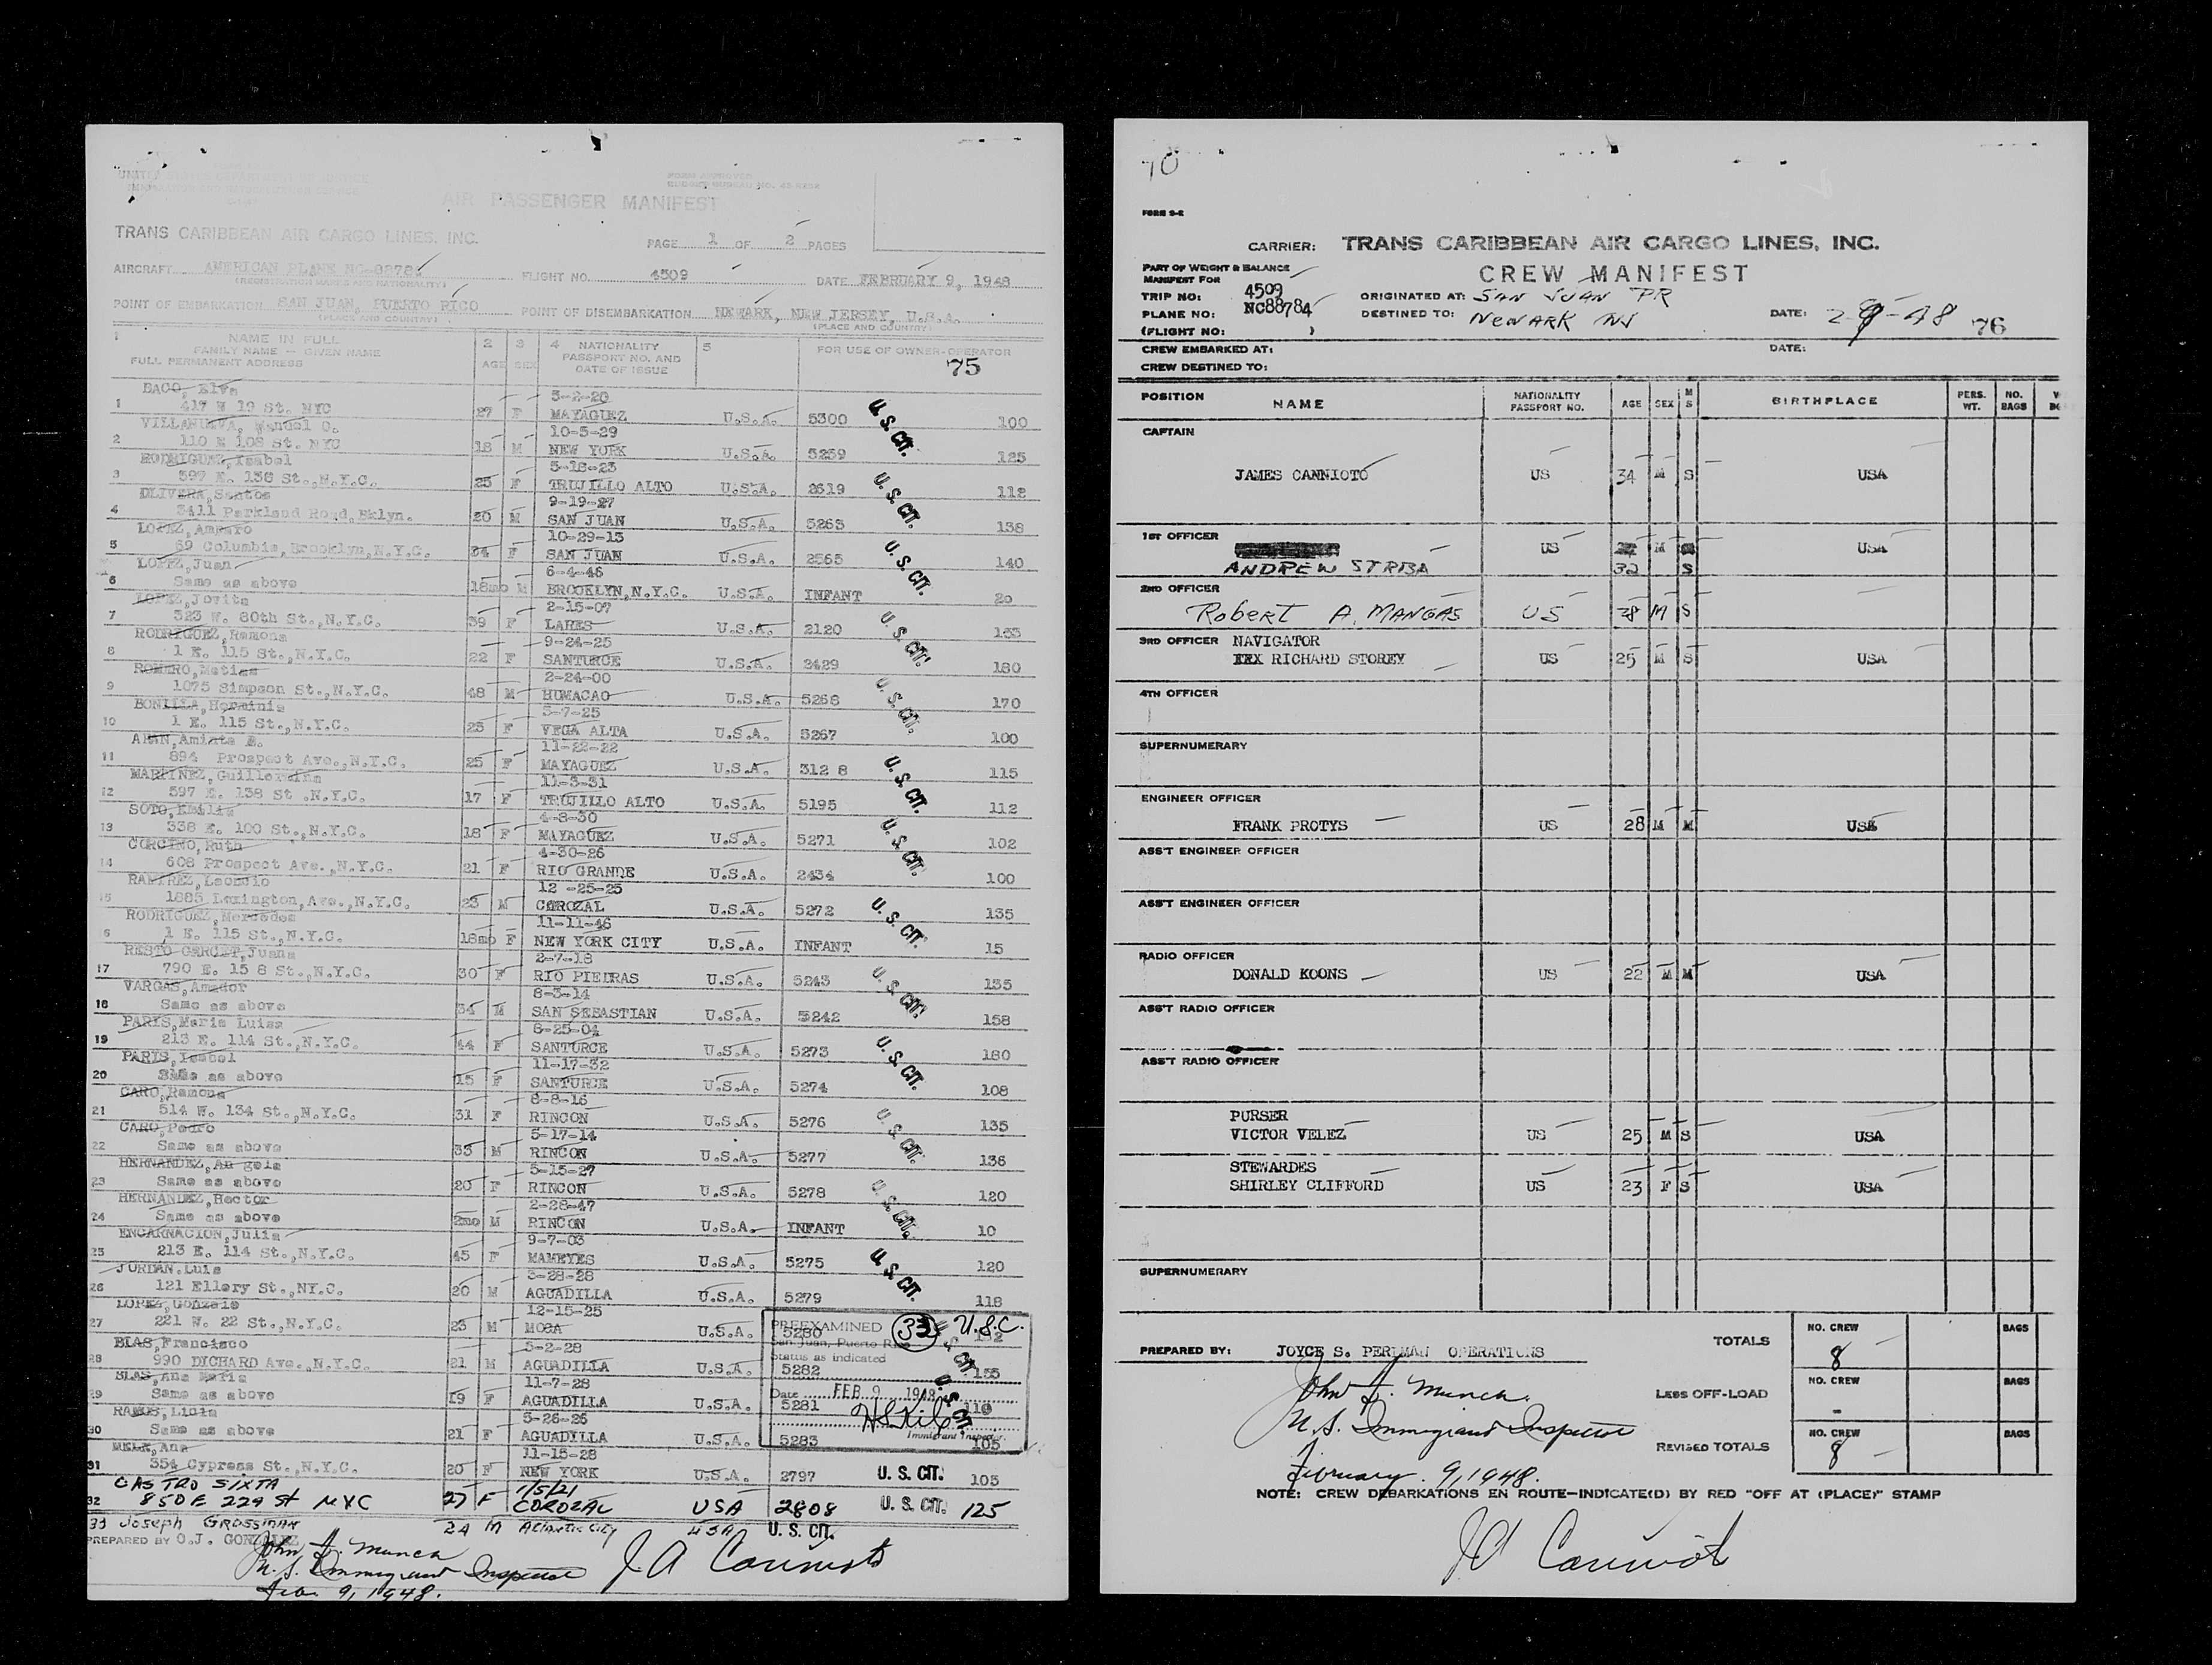 UNITED STATES DEPARTMENT OF JUSTICE
IMMIGRATION AND NATURALIZATION SERVICE
FORM APPROVED
BUDGET BUREAU NO.
AIR PASSENGER MANIFEST
TRANS CARIBBEAN AIR CARGO LINES, INC.
PAGE 1 OF 2 PAGES
AIRCRAFT AMERICAN PLANE NC-88784 FLIGHT NO. 4509 DATE FEBRUARY 9, 1948
(REGISTRATION MARKS AND NATIONALITY)
POINT OF EMBARKATION SAN JUAN, PUERTO RICO POINT OF DISEMBARKATION NEWARK, NEW JERSEY, U.S.A.
(PLACE AND COUNTRY) (PLACE AND COUNTRY)
1 NAME IN FULL 2 3 4 NATIONALITY 5
FAMILY NAME — GIVEN NAME PASSPORT NO. AND FOR USE OF OWNER-OPERATOR
FULL PERMANENT ADDRESS AGE SEX DATE OF ISSUE 75
BACO, Elva 5-2-20
1 417 W 19 St. NYC 27 F MAYAGUEZ U.S.A. 5300 U.S. CIT. 100
VILLANUEVA, Manuel C. 10-5-29
2 110 E 108 St. NYC 18 M NEW YORK U.S.A. 5259 125
RODRIGUEZ, Isabel 5-18-23
3 597 E. 138 St., N.Y.C. 25 F TRUJILLO ALTO U.S.A. 2619 U.S. CIT. 112
OLIVERA, Santos 9-19-27
4 3411 Parkland Road, Bklyn. 20 M SAN JUAN U.S.A. 5263 138
LOPEZ, Amparo 10-29-13
5 69 Columbia, Brooklyn, N.Y.C. 34 F SAN JUAN U.S.A. 2565 U.S. CIT. 140
LOPEZ, Juan 6-4-46
6 Same as above 18mo M BROOKLYN, N.Y.C. U.S.A. INFANT 20
LOPEZ, Jovita 2-15-07
7 323 W. 80th St., N.Y.C. 39 F LARES U.S.A. 2120 U.S. CIT. 133
RODRIGUEZ, Ramona 9-24-25
8 1 E. 115 St., N.Y.C. 22 F SANTURCE U.S.A. 2429 180
ROMERO, Matias 2-24-00
9 1075 Simpson St., N.Y.C. 48 M HUMACAO U.S.A. 5268 U.S. CIT. 170
BONILLA, Herminia 5-7-25
10 1 E. 115 St., N.Y.C. 23 F VEGA ALTA U.S.A. 5267 100
ARAN, Aminta E. 11-22-22
11 894 Prospect Ave., N.Y.C. 25 F MAYAGUEZ U.S.A. 312 8 U.S. CIT. 115
MARTINEZ, Guillermina 11-3-31
12 597 E. 138 St .N.Y.C. 17 F TRUJILLO ALTO U.S.A. 5195 112
SOTO, Emilia 4-8-30
13 338 E. 100 St., N.Y.C. 18 F MAYAGUEZ U.S.A. 5271 U.S. CIT. 102
CORCINO, Ruth 4-30-26
14 608 Prospect Ave., N.Y.C. 21 F RIO GRANDE U.S.A. 2434 100
RAMIREZ, Leoncio 12 -25-25
15 1885 Lexington, Ave., N.Y.C. 23 M COROZAL U.S.A. 5272 U.S. CIT. 135
RODRIGUEZ, Mercedes 11-11-46
6 1 E. 115 St., N.Y.C. 18mo F NEW YORK CITY U.S.A. INFANT 15
RESTO Juana 2-7-18
17 790 E. 15 8 St., N.Y.C. 30 F RIO PIEDRAS U.S.A. 5243 U.S. CIT. 135
VARGAS, Amador 8-3-14
18 Same as above 34 M SAN SEBASTIAN U.S.A. 5242 158
PARIS, Maria Luisa 8-25-04
19 213 E. 114 St., N.Y.C. 44 F SANTURCE U.S.A. 5273 U.S. CIT. 180
PARIS, Isabel 11-17-32
20 Same as above 15 F SANTURCE U.S.A. 5274 108
CARO, Ramona 8-8-16
21 514 W. 134 St., N.Y.C. 31 F RINCON U.S.A. 5276 U.S. CIT. 135
CARO, Pedro 5-17-14
22 Same as above 33 M RINCON U.S.A. 5277 136
HERNANDEZ, An gela 5-15-27
23 Same as above 20 F RINCON U.S.A. 5278 U.S. CIT. 120
HERNANDEZ, Hector 2-28-47
24 Same as above 2mo M RINCON U.S.A. INFANT 10
ENCARNACION, Julia 9-7-03
25 213 E. 114 St., N.Y.C. 45 F MAMEYES U.S.A. 5275 U.S. CIT. 120
JORDAN. Luis 3-28-28
26 121 Ellery St., NY.C. 20 M AGUADILLA U.S.A. 5279 118
LOPEZ, Gonzalo 12-15-25
27 221 W. 22 St., N.Y.C. 23 M MOCA U.S.A. 5280 132
PREEXAMINED 33 U.S.C.
San Juan, Puerto Rico
Status as indicated
BLAS, Francisco 5-2-28
28 990 DICHARD Ave., N.Y.C. 21 M AGUADILLA U.S.A. 5282 U.S. CIT. 155
BLAS, Ana Maria 11-7-28
Date FEB 9 1948
29 Same as above 19 F AGUADILLA U.S.A. 5281 U.S. CIT. 110
RAMOS, Lidia 5-26-26
Immigrant Inspector
30 Same as above 21 F AGUADILLA U.S.A. 5283 105
MELE, Ana 11-15-28
31 354 Cypress St., N.Y.C. 20 F NEW YORK U.S.A. 2797 U.S. CIT. 105
CASTRO SIXTA 1/5/21
32 850 E 229 St NYC 27 F COROZAL USA 2808 U.S. CIT. 125
33 Joseph GROSSMAN 24 M Atlantic City USA U.S. CIT.
PREPARED BY O.J. GONZALEZ
John F. Munch
U.S. Immigrant Inspector J A Cannioto
Feb. 9, 1948.
70
FORM S-2
CARRIER: TRANS CARIBBEAN AIR CARGO LINES, INC.
PART OF WEIGHT & BALANCE
MANIFEST FOR
CREW MANIFEST
TRIP NO: 4509 ORIGINATED AT: SAN JUAN PR
PLANE NO: NC88784 DESTINED TO: NEWARK NJ DATE: 2-9-48 76
(FLIGHT NO: )
CREW EMBARKED AT: DATE:
CREW DESTINED TO:
POSITION NAME NATIONALITY PASSPORT NO. AGE SEX M S BIRTHPLACE PERS. WT. NO. BAGS
CAPTAIN
JAMES CANNIOTO US 34 M S USA
1ST OFFICER
US M USA
ANDREW STRBA 32 S
2ND OFFICER
Robert A. MANGAS US 28 M S
3RD OFFICER NAVIGATOR
XXX RICHARD STOREY US 25 M S USA
4TH OFFICER
SUPERNUMERARY
ENGINEER OFFICER
FRANK PROTYS US 28 M M USA
ASS'T ENGINEER OFFICER
ASS'T ENGINEER OFFICER
RADIO OFFICER
DONALD KOONS US 22 M M USA
ASS'T RADIO OFFICER
ASS'T RADIO OFFICER
PURSER
VICTOR VELEZ US 25 M S USA
STEWARDES
SHIRLEY CLIFFORD US 23 F S USA
SUPERNUMERARY
NO. CREW BAGS
TOTALS
PREPARED BY: JOYCE S. PERLMAN OPERATIONS 8
NO. CREW BAGS
John F. Munch LESS OFF-LOAD -
U.S. Immigrant Inspector
NO. CREW BAGS
REVISED TOTALS 8
February. 9, 1948.
NOTE: CREW DEBARKATIONS EN ROUTE-INDICATE(D) BY RED "OFF AT (PLACE)" STAMP
J A Cannioto